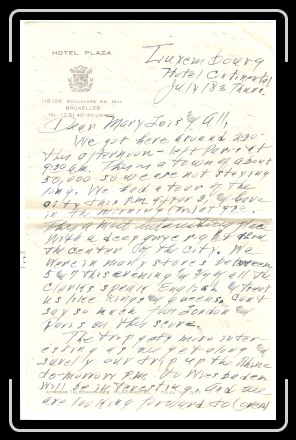 HOTEL PLAZA
118-126 BOULEVARD AD. MAX
BRUXELLES
Luxembourg
Hotel Continental
July 18 Thurs.
Dear Mary Lois & All,
We got here around 2:30
this afternoon - left Paris at
9:30 am. This is a town of about
50,000 so we are not staying
long. We had a tour of the
city this P.M. after 3, & leave
in the morning
with a deep gorge right thru
the center of the city. We
were in many stores between
5 & 7 this evening & all the
Clerks speak English & treat
us like kings & queens. Can't
say so much for London &
Paris on this score.
The trip gets more inter-
esting as we go along &
surely our trip up the Rhine
to-morrow P.M. to Wiesbaden
will be interesting. And we
are looking forward to (over)